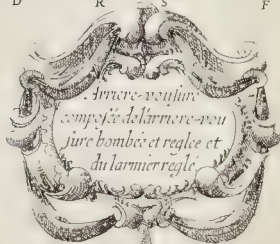 D R S F
Arriere-voussure
composée de l'arriere-vou
sure bombée et reglee et
du larmier reglé